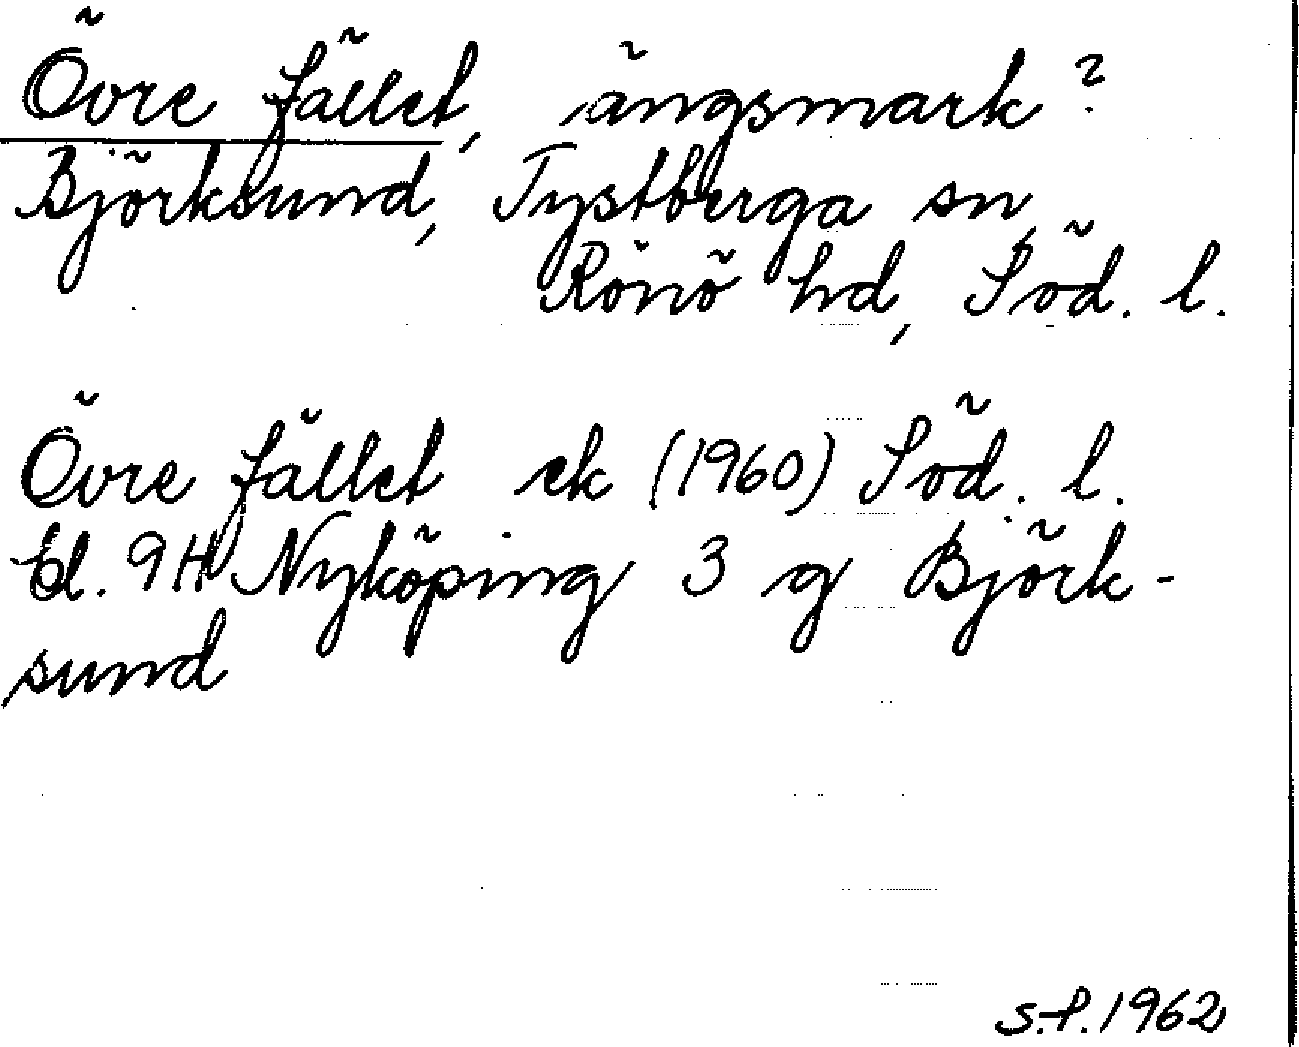 Övre fället, ängsmark?
Björksund, Tystberga sn,
Rönö hd, Söd. l.
Övre fället ek (1960) Söd. l.
bl. 9H Nyköping 3 g Björk-
sund
S.P. 1962